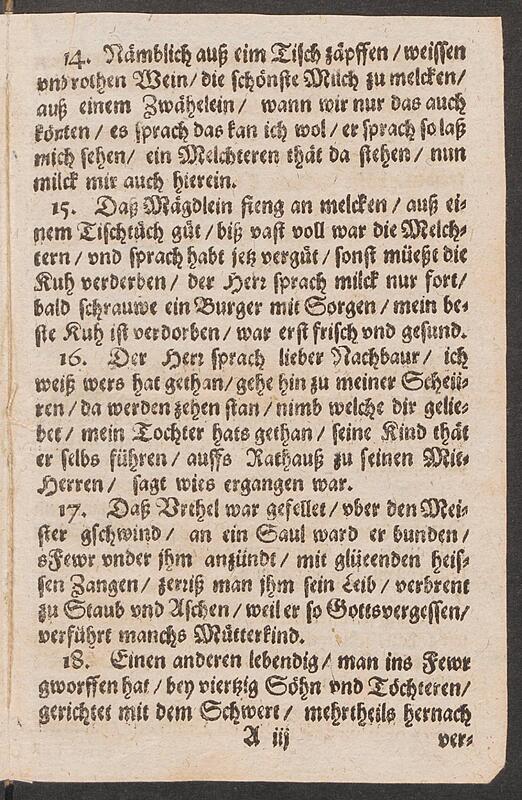 14. Nämblich auß eim Tisch zäpffen / weissen
vnd rothen Wein / die schönste Milch zu melcken /
auß einem Zwähelein / wann wir nur das auch
könten / es sprach das kan ich wol / er sprach so laß
mich sehen / ein Melchteren thät da stehen / nun
milck mir auch hierein.
15. Daß Mägdlein fieng an melcken / auß ei-
nem Tischtüch güt / biß vast voll war die Melch-
tern / vnd sprach habt jetz vergüt / sonst müeßt die
Kuh verderben / der Herr sprach milck nur fort /
bald schrauwe ein Burger mit Sorgen / mein be-
ste Kuh ist verdorben / war erst frisch vnd gesund.
16. Der Herr sprach lieber Nachbaur / ich
weiß wers hat gethan / gehe hin zu meiner Scheü-
ren / da werden zehen stan / nimb welche dir gelie-
bet / mein Tochter hats gethan / seine Kind thät
er selbs führen / auffs Rathauß zu seinen Mit-
Herren / sagt wies ergangen war.
17. Daß Vrthel war gefellet / vber den Mei-
ster gschwind / an ein Saul ward er bunden /
sFewr vnder jhm anzündt / mit glüeenden heis-
sen Zangen / zerriß man jhm sein Leib / verbrent
zu Staub vnd Aschen / weil er so Gottsvergessen /
verführt manchs Mütterkind.
18. Einen anderen lebendig / man ins Fewr
gworffen hat / bey viertzig Söhn vnd Töchteren /
gerichtet mit dem Schwert / mehrtheils hernach
A iij ver-